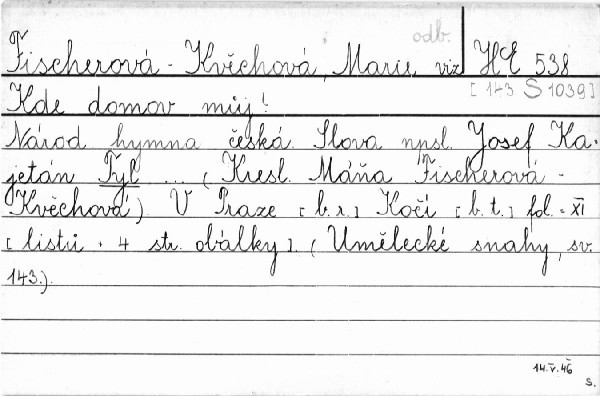 odb.
Fischerová-Kvěchová, Marie, viz HE 538
[143 S 1039]
Kde domov můj!
Národ. hymna česká. Slova npsl. Josef Ka-
jetán Tyl ... (Kresl. Máňa Fischerová-
Kvěchová). V Praze [b.r.] Kočí [b.t.] fol. = XI
[listů + 4 str. obálky]. (Umělecké snahy, sv.
143.).
14.V.46
S.